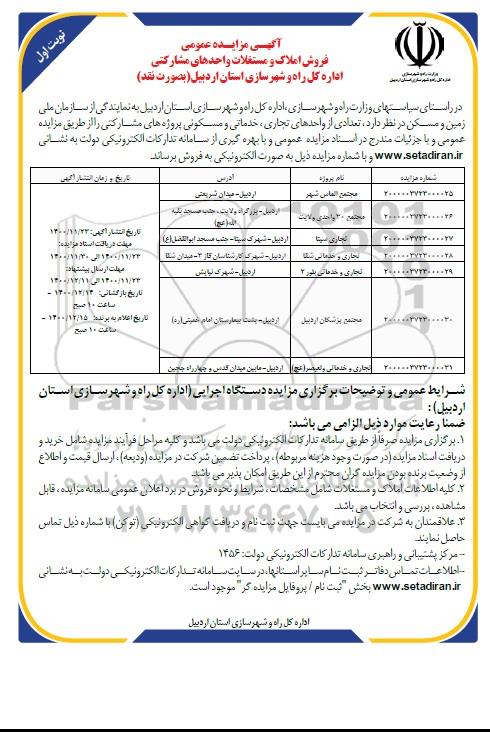 نوبت اول
آگهی مزایده عمومی
فروش املاک و مستغلات واحدهای مشارکتی
اداره کل راه و شهرسازی استان اردبیل(بصورت نقد)
وزارت راه و شهرسازی
اداره کل راه و شهرسازی استان اردبیل
در راستای سیاستهای وزارت راه و شهرسازی، اداره کل راه و شهرسازی استان اردبیل به نمایندگی از سازمان ملی
زمین و مسکن در نظر دارد، تعدادی از واحدهای تجاری، خدماتی و مسکونی پروژه های مشارکتی را از طریق مزایده
عمومی و با جزئیات مندرج در اسناد مزایده عمومی و با بهره گیری از سامانه تدارکات الکترونیکی دولت به نشانی
www.setadiran.ir و با شماره مزایده ذیل به صورت الکترونیکی به فروش برساند.
شماره مزایده نام پروژه آدرس تاریخ و زمان انتشار آگهی
۲۰۰۰۰۰۳۷۲۳۰۰۰۰۲۵ مجتمع الماس شهر اردبیل-میدان شریعتی
۲۰۰۰۰۰۳۷۲۳۰۰۰۰۲۶ مجتمع ۳۰ واحدی ولایت اردبیل-بزرگراه ولایت، جنب مسجد بقیه الله(عج)
۲۰۰۰۰۰۳۷۲۳۰۰۰۰۲۷ تجاری سینا اردبیل-شهرک سینا-جنب مسجد ابوالفضل(ع)
۲۰۰۰۰۰۳۷۲۳۰۰۰۰۲۸ تجاری و خدماتی شفا اردبیل-شهرک کارشناسان فاز ۳-میدان شفا
۲۰۰۰۰۰۳۷۲۳۰۰۰۰۲۹ تجاری و خدماتی بلور ۲ اردبیل-شهرک نیایش
۲۰۰۰۰۰۳۷۲۳۰۰۰۰۳۰ مجتمع پزشکان اردبیل اردبیل-پشت بیمارستان امام خمینی(ره)
۲۰۰۰۰۰۳۷۲۳۰۰۰۰۳۱ تجاری و خدماتی ولیعصر(عج) اردبیل-مابین میدان قدس و چهارراه ججین
تاریخ انتشار آگهی: ۱۴۰۰/۱۱/۲۳
مهلت دریافت اسناد مزایده:
۱۴۰۰/۱۱/۲۳ الی ۱۴۰۰/۱۱/۳۰
مهلت ارسال پیشنهاد:
۱۴۰۰/۱۱/۲۳ الی ۱۴۰۰/۱۲/۱۱
تاریخ بازگشائی: ۱۴۰۰/۱۲/۱۴ -
ساعت ۱۰ صبح
تاریخ اعلام به برنده: ۱۴۰۰/۱۲/۱۵ -
ساعت ۱۰ صبح
شرایط عمومی و توضیحات برگزاری مزایده دستگاه اجرایی (اداره کل راه و شهرسازی استان
اردبیل):
ضمنا رعایت موارد ذیل الزامی می باشد:
۱. برگزاری مزایده صرفا از طریق سامانه تدارکات الکترونیکی دولت می باشد و کلیه مراحل فرآیند مزایده شامل خرید و
دریافت اسناد مزایده (در صورت وجود هزینه مربوطه)، پرداخت تضمین شرکت در مزایده (ودیعه)، ارسال قیمت و اطلاع
از وضعیت برنده بودن مزایده گران محترم از این طریق امکان پذیر می باشد.
۲. کلیه اطلاعات املاک و مستغلات شامل مشخصات، شرایط و نحوه فروش در برد اعلان عمومی سامانه مزایده، قابل
مشاهده، بررسی و انتخاب می باشد.
۳. علاقمندان به شرکت در مزایده می بایست جهت ثبت نام و دریافت گواهی الکترونیکی (توکن) با شماره ذیل تماس
حاصل نمایند.
-مرکز پشتیبانی و راهبری سامانه تدارکات الکترونیکی دولت: ۱۴۵۶
-اطلاعات تماس دفاتر ثبت نام سایر استانها، در سایت سامانه تدارکات الکترونیکی دولت به نشانی
www.setadiran.ir بخش "ثبت نام / پروفایل مزایده گر" موجود است.
اداره کل راه و شهرسازی استان اردبیل
ParsNamadData
۰۲۱-۸۸۳۴۹۶۷۰-۵